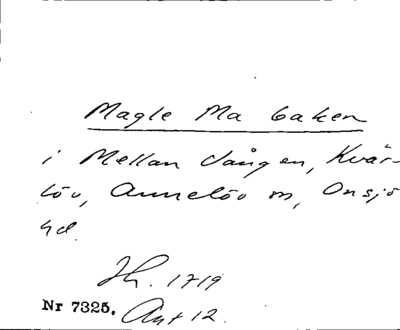 Magle Ma backen
i Mellan vången, Kvär-
löv, Annelöv sn, Onsjö
hd.
Jh. 1719
Nr 7325. Akt 12.